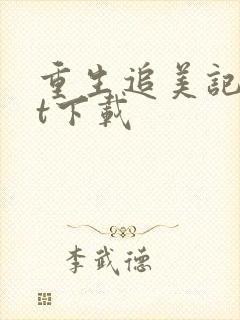 重生追美记
t下载
李武德